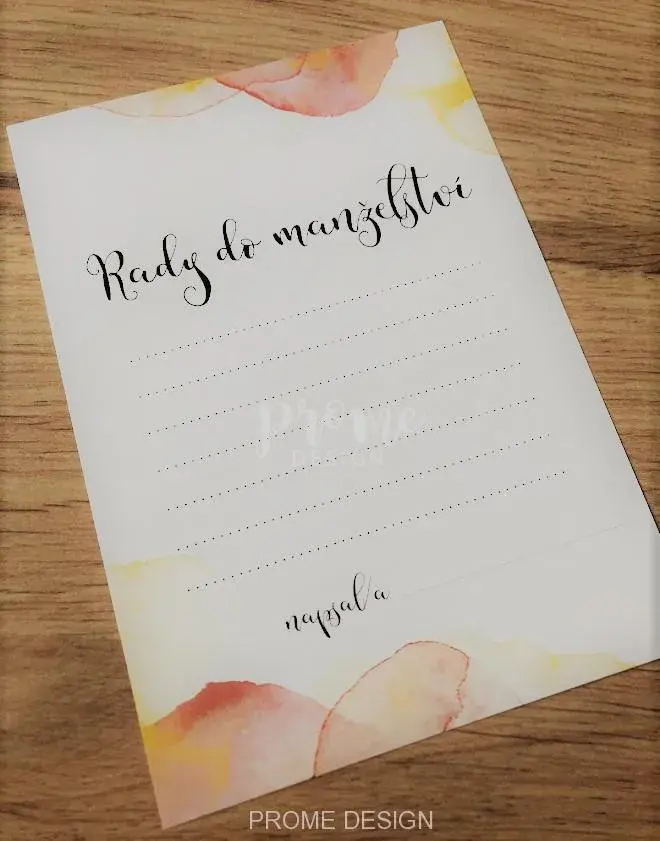 Rady do manželství
prome
DESIGN
napsal/a
PROME DESIGN